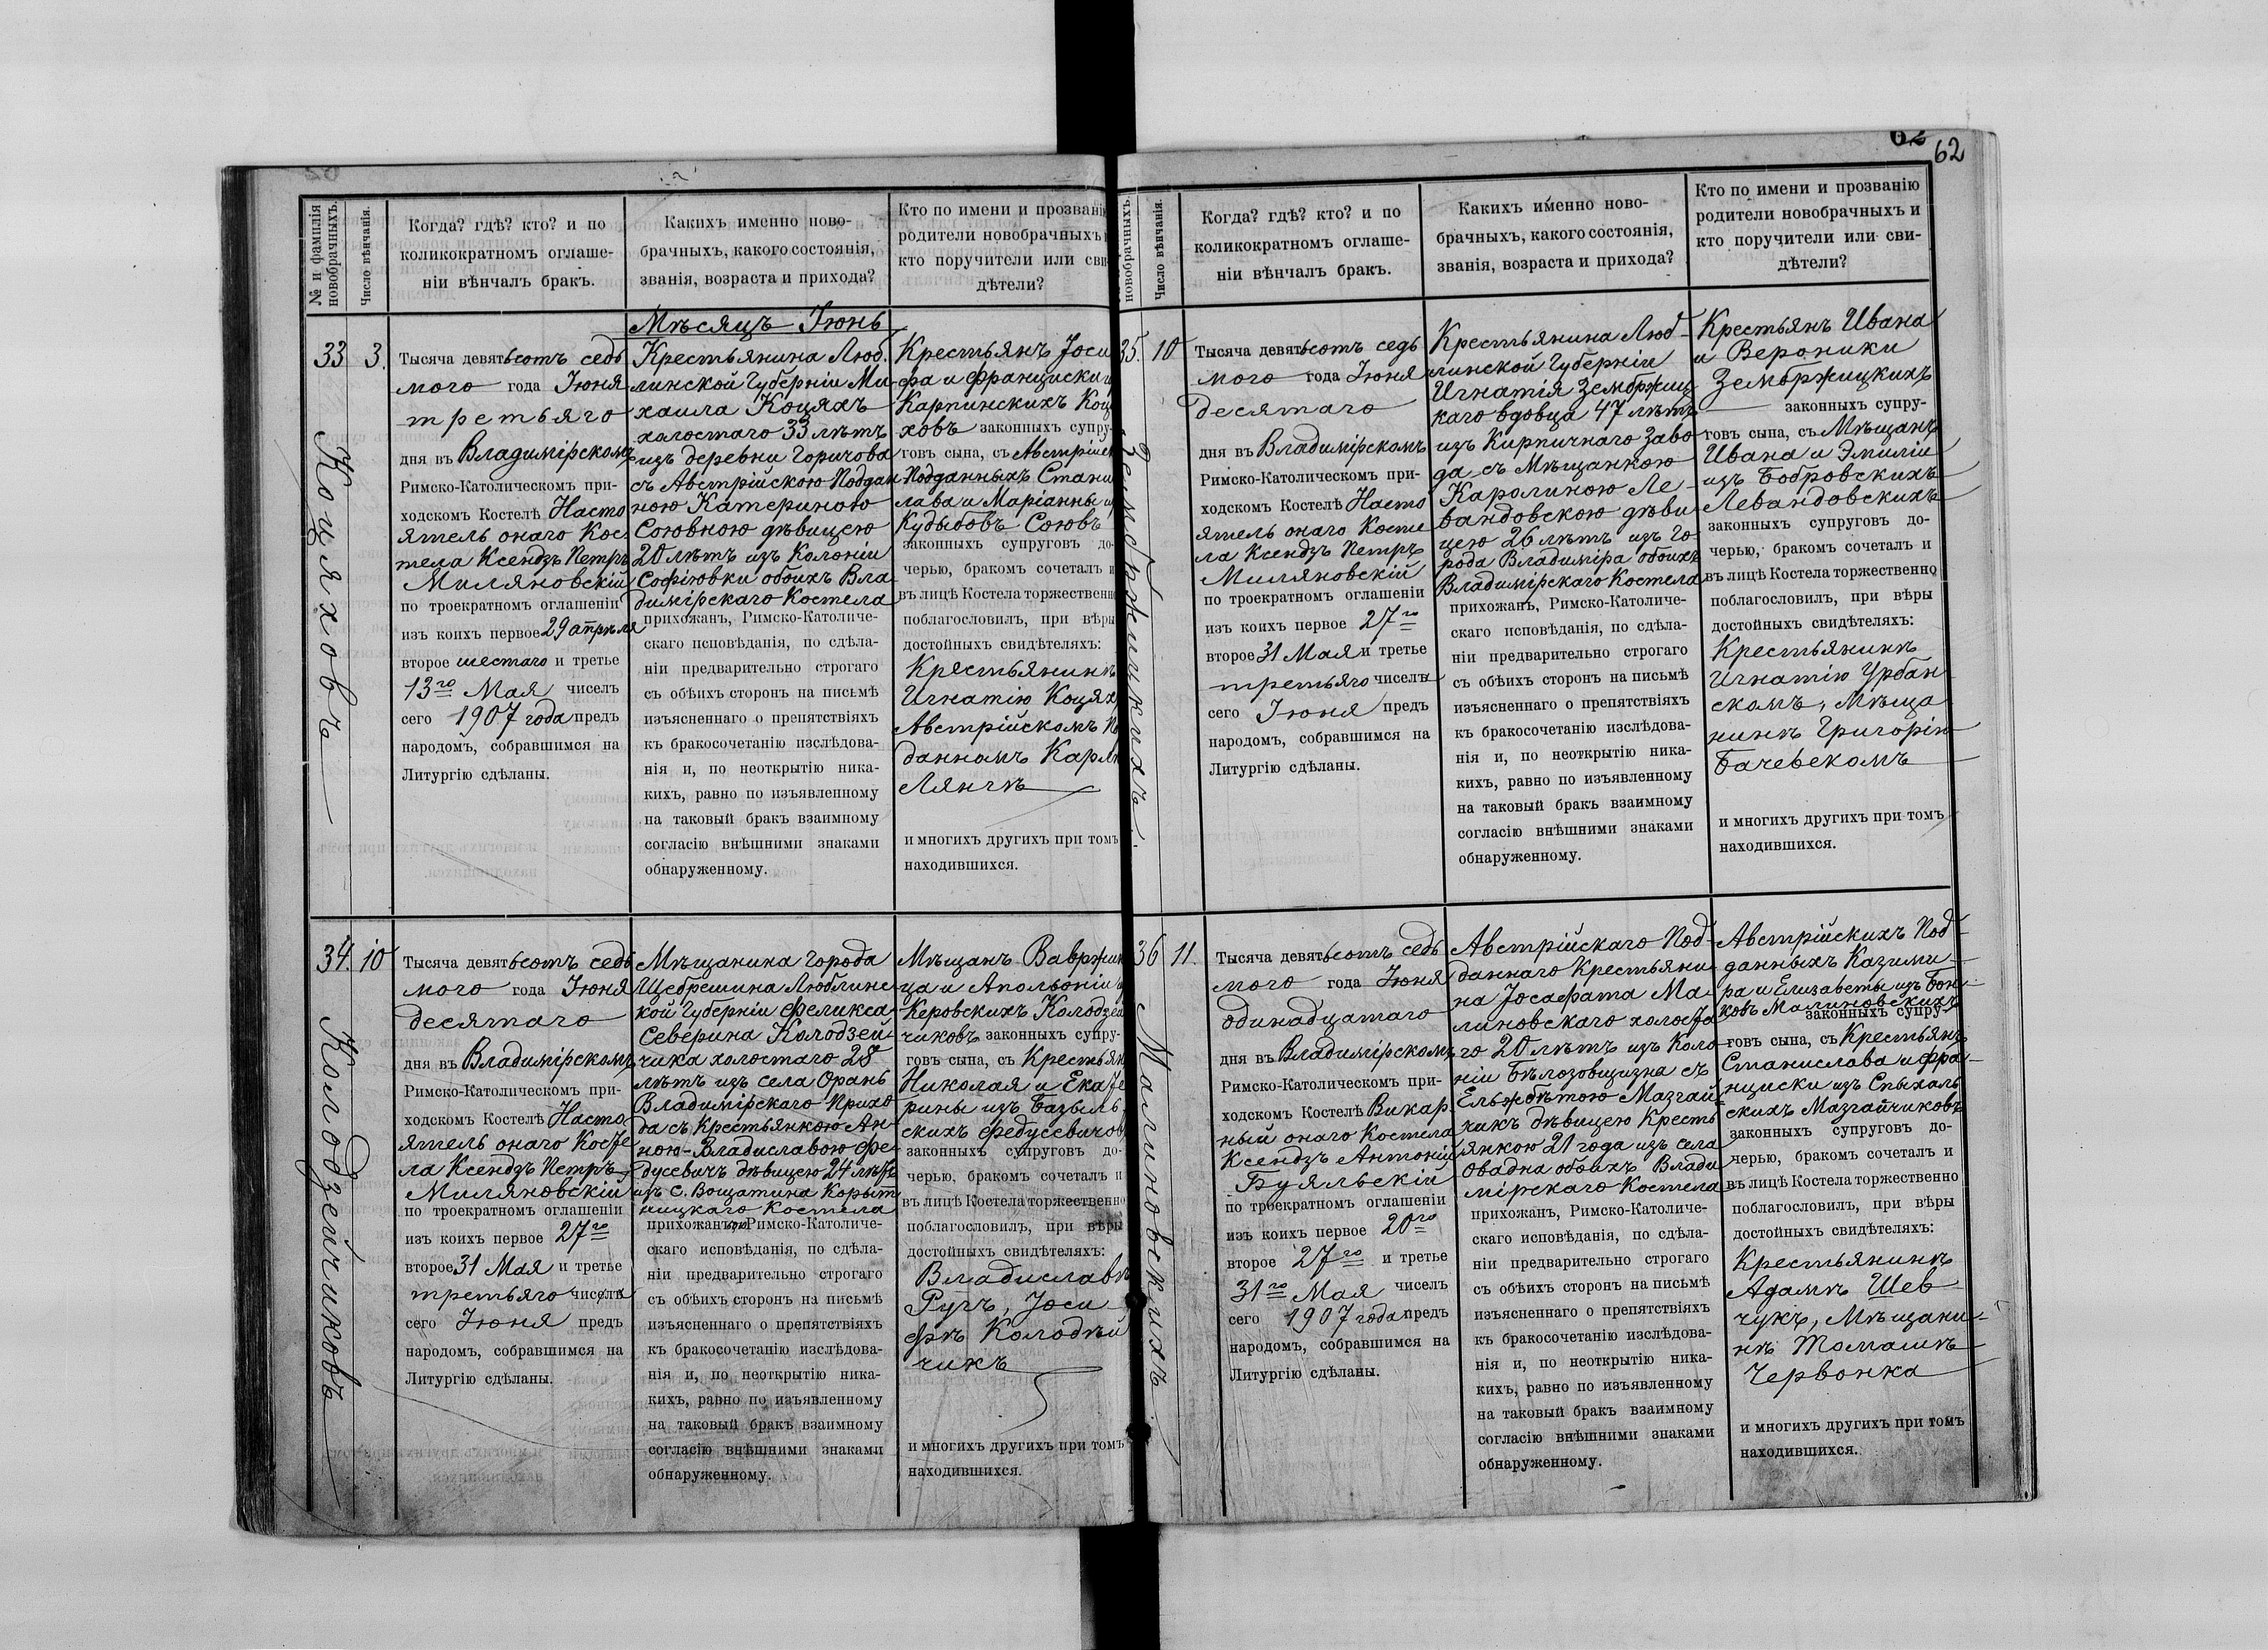 62
62
№ и фамилія
новобрачныхъ.
Число вѣнчанія.
Когда? гдѣ? кто? и по
коликократномъ оглаше-
ніи вѣнчалъ бракъ.
Какихъ именно ново-
брачныхъ, какого состоянія,
званія, возраста и прихода?
Кто по имени и прозванію
родители новобрачныхъ
кто поручители или сви-
дѣтели?
33
3.
Коцяховъ
Тысяча девятьсотъ седь
мого года Іюня
третьяго
дня въ Владимірскомъ
Римско-Католическомъ при-
ходскомъ Костелѣ Насто
ятель онаго Кос
тела Ксендзъ Петръ
Миляновскій
по троекратномъ оглашеніи
изъ коихъ первое 29 апрѣля
второе шестаго и третье
13го Мая чиселъ
сего 1907 года предъ
народомъ, собравшимся на
Литургію сдѣланы.
Мѣсяцъ Іюнь
Крестьянина Люб.
линской Губерніи Ми-
хаила Коцяхъ
холостаго 33 лѣтъ
изъ деревни Горичова
съ Австрійскою Поддан
ною Катериною
Соювною дѣвицею
20 лѣтъ изъ Колоніи
Софіювки обоихъ Вла-
димірскаго Костела
прихожанъ, Римско-Католиче-
скаго исповѣданія, по сдѣла-
ніи предварительно строгаго
съ обѣихъ сторонъ на письмѣ
изъясненнаго о препятствіяхъ
къ бракосочетанію изслѣдова-
нія и, по неоткрытію ника-
кихъ, равно по изъявленному
на таковый бракъ взаимному
согласію внѣшними знаками
обнаруженному.
Крестьянъ Іоси
фа и Франциски
Карпинскихъ Коц
ховъ законныхъ супру-
говъ сына, съ Австрійск
Подданныхъ Стани
лава и Маріанны
Кудыбовъ Соювъ
законныхъ супруговъ до-
черью, бракомъ сочеталъ и
въ лицѣ Костела торжественно
поблагословилъ, при вѣры
достойныхъ свидѣтеляхъ:
Крестьянинѣ
Игнатію Коцях
Австрійскомъ По
данномъ Карлѣ
Лянгѣ
и многихъ другихъ при томъ
находившихся.
34.
10
Колодзейчиковъ
Тысяча девятьсотъ седь
мого года Іюня
десятаго
дня въ Владимірскомъ
Римско-Католическомъ при-
ходскомъ Костелѣ Насто-
ятель онаго Косте
ла Ксендзъ Петръ
Миляновскій
по троекратномъ оглашеніи
изъ коихъ первое 27го
второе 31 Мая и третье
третьяго чиселъ
сего Іюня предъ
народомъ, собравшимся на
Литургію сдѣланы.
Мѣщанина города
Щебрешина Люблинс
кой Губерніи Феликса-
Северина Колодзей-
чика холостаго 28
лѣтъ изъ села Орань
Владимірскаго Прихо
да съ Крестьянкою Ан-
ною-Владиславою Фе-
дусевичъ дѣвицею 24 лѣтъ
изъ с. Вощатина Корыт
ницкаго Костела
прихожанъ, Римско-Католиче-
скаго исповѣданія, по сдѣла-
ніи предварительно строгаго
съ обѣихъ сторонъ на письмѣ
изъясненнаго о препятствіяхъ
къ бракосочетанію изслѣдова-
нія и, по неоткрытію ника-
кихъ, равно по изъявленному
на таковый бракъ взаимному
согласію внѣшними знаками
обнаруженному.
Мѣщанъ Вавржин
ца и Апольоніи
Керовскихъ Колодзей
чиковъ законныхъ супру-
говъ сына, съ Крестьян
Николая и Екате
рины изъ Базыль
скихъ Федусевичов
законныхъ супруговъ до-
черью, бракомъ сочеталъ и
въ лицѣ Костела торжественно
поблагословилъ, при вѣры
достойныхъ свидѣтеляхъ:
Владиславѣ
Ругъ, Іоси
фѣ Колодзѣй
чикъ
и многихъ другихъ при томъ
находившихся.
новобрачныхъ.
Число вѣнчанія.
Когда? гдѣ? кто? и по
коликократномъ оглаше-
ніи вѣнчалъ бракъ.
Какихъ именно ново-
брачныхъ, какого состоянія,
званія, возраста и прихода?
Кто по имени и прозванію
родители новобрачныхъ и
кто поручители или сви-
дѣтели?
35.
10
Зембржицкихъ.
Тысяча девятьсотъ седь
мого года Іюня
десятаго
дня въ Владимірскомъ
Римско-Католическомъ при-
ходскомъ Костелѣ Насто
ятель онаго Косте
ла Ксендзъ Петръ
Миляновскій
по троекратномъ оглашеніи
изъ коихъ первое 27го
второе 31 Мая и третье
третьяго чиселъ
сего Іюня предъ
народомъ, собравшимся на
Литургію сдѣланы.
Крестьянина Люб-
линской Губерніи
Игнатія Зембржиц
каго вдовца 47 лѣтъ
изъ Кирпичнаго Заво-
да съ Мѣщанкою
Каролиною Ле-
вандовскою дѣви
цею 26 лѣтъ изъ Го-
рода Владиміра обоихъ
Владимірскаго Костела
прихожанъ, Римско-Католиче-
скаго исповѣданія, по сдѣла-
ніи предварительно строгаго
съ обѣихъ сторонъ на письмѣ
изъясненнаго о препятствіяхъ
къ бракосочетанію изслѣдова-
нія и, по неоткрытію ника-
кихъ, равно по изъявленному
на таковый бракъ взаимному
согласію внѣшними знаками
обнаруженному.
Крестьянъ Ивана
и Вероники
Зембржицкихъ
законныхъ супру-
говъ сына, съ Мѣщанъ
Ивана и Эмиліи
изъ Бобровскихъ
Левандовскихъ
законныхъ супруговъ до-
черью, бракомъ сочеталъ и
въ лицѣ Костела торжественно
поблагословилъ, при вѣры
достойныхъ свидѣтеляхъ:
Крестьянинѣ
Игнатію Урбан
скомъ, Мѣща
нинѣ Григорію
Бачевскомъ
и многихъ другихъ при томъ
находившихся.
36
11.
Малиновскихъ.
Тысяча девятьсотъ седь
мого года Іюня
одинадцатаго
дня въ Владимірскомъ
Римско-Католическомъ при-
ходскомъ Костелѣ Викар
ный онаго Костела
Ксендзъ Антоній
Буяльскій
по троекратномъ оглашеніи
изъ коихъ первое 20го
второе 27го и третье
31го Мая чиселъ
сего 1907 года предъ
народомъ, собравшимся на
Литургію сдѣланы.
Австрійскаго Под-
даннаго Крестьяни
на Іосафата Ма-
линовскаго холоста
го 20 лѣтъ изъ Коло-
ніи Бѣлозовщизна съ
Ельжбѣтою Мазгай
чикъ дѣвицею Кресть
янкою 21 года изъ села
Овадна обоихъ Влади
мірскаго Костела
прихожанъ, Римско-Католиче-
скаго исповѣданія, по сдѣла-
ніи предварительно строгаго
съ обѣихъ сторонъ на письмѣ
изъясненнаго о препятствіяхъ
къ бракосочетанію изслѣдова-
нія и, по неоткрытію ника-
кихъ, равно по изъявленному
на таковый бракъ взаимному
согласію внѣшними знаками
обнаруженному.
Австрійскихъ Под-
данныхъ Казими-
ра и Елизаветы изъ Бон-
ковъ Малиновскихъ
законныхъ супру-
говъ сына, съ Крестьянъ
Станислава и Фра-
нциски изъ Спыхаль
скихъ Мазгайчиковъ
законныхъ супруговъ до-
черью, бракомъ сочеталъ и
въ лицѣ Костела торжественно
поблагословилъ, при вѣры
достойныхъ свидѣтеляхъ:
Крестьянинѣ
Адамѣ Шев
чукъ, Мѣщани-
нѣ Томашѣ
Червонка
и многихъ другихъ при томъ
находившихся.